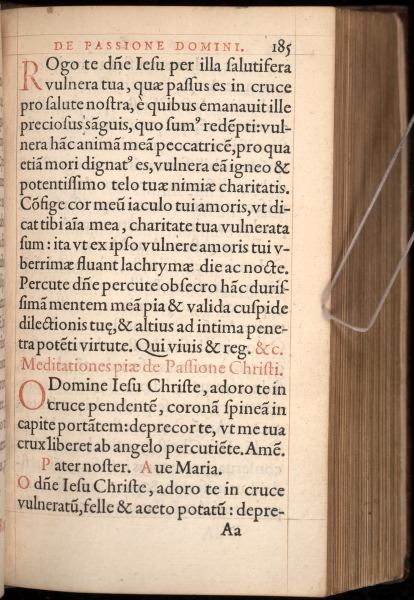 DE PASSIONE DOMINI. 185
ROgo te dñe Iesu per illa salutifera
vulnera tua, quæ passus es in cruce
pro salute nostra, è quibus emanauit ille
preciosus sãguis, quo sumꝰ redẽpti: vul-
nera hãc animã meã peccatricẽ, pro qua
etiã mori dignatꝰ es, vulnera eã igneo &
potentissimo telo tuæ nimiæ charitatis.
Cõfige cor meũ iaculo tui amoris, vt di-
cat tibi aĩa mea, charitate tua vulnerata
sum: ita vt ex ipso vulnere amoris tui v-
berrimæ fluant lachrymæ die ac nocte.
Percute dñe percute obsecro hãc durif-
simã mentem meã pia & valida cuspide
dilectionis tuę, & altius ad intima pene-
tra potẽti virtute. Qui viuis & reg. &c.
Meditationes piæ de Passione Christi.
O Domine Iesu Christe, adoro te in
cruce pendentẽ, coronã spineã in
capite portãtem: deprecor te, vt me tua
crux liberet ab angelo percutiẽte. Amẽ.
Pater noster. Aue Maria.
O dñe Iesu Christe, adoro te in cruce
vulneratũ, felle & aceto potatũ: depre-
Aa